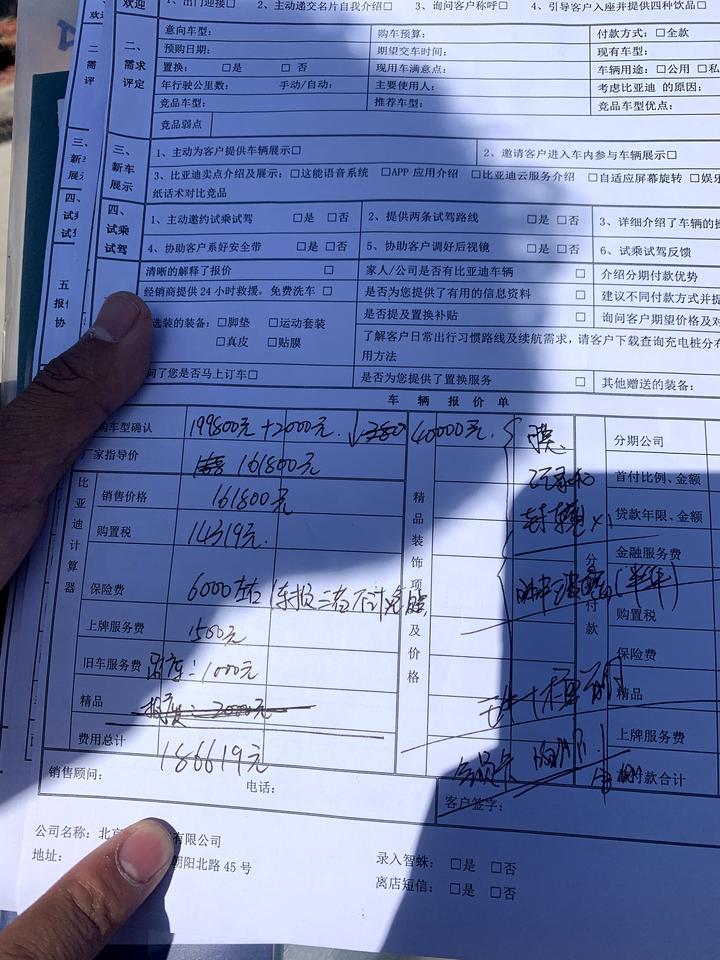 欢迎 1、出门迎接□ 2、主动递交名片自我介绍□ 3、询问客户称呼□ 4、引导客户入座并提供四种饮品□
二、需求评定
意向车型: 购车预算: 付款方式:□全款
预购日期: 期望交车时间: 现有车型:
置换: □是 □否 现用车满意点: 车辆用途:□公用 □私
年行驶公里数: 手动/自动: 主要使用人: 考虑比亚迪 的原因:
竞品车型: 推荐车型: 竞品车型优点:
竞品弱点
三、新车展示
1、主动为客户提供车辆展示□ 2、邀请客户进入车内参与车辆展示□
3、比亚迪卖点介绍及展示:□这能语音系统 □APP 应用介绍 □比亚迪云服务介绍 □自适应屏幕旋转 □娱乐
纸话术对比竞品
四、试乘试驾
1、主动邀约试乘试驾 □是 □否 2、提供两条试驾路线 □是 □否 3、详细介绍了车辆的操
4、协助客户系好安全带 □是 □否 5、协助客户调好后视镜 □是 □否 6、试乘试驾反馈
清晰的解释了报价 □ 家人/公司是否有比亚迪车辆 □ 介绍分期付款优势
经销商提供 24 小时救援,免费洗车 □ 是否为您提供了有用的信息资料 □ 建议不同付款方式并提
选装的装备:□脚垫 □运动套装 是否提及置换补贴 □ 询问客户期望价格及对
□真皮 □贴膜 了解客户日常出行习惯路线及续航需求,请客户下载查询充电桩分布
用方法
问了您是否马上订车□ 是否为您提供了置换服务 □ 其他赠送的装备:
车 辆 报 价 单
购车型确认 199800元+2000元 ↓ 40000元. 膜 分期公司
厂家指导价 161800元 记录仪 首付比例、金额
比亚迪计算器
精品装饰项及价格
分付款
销售价格 161800元 ×1 贷款年限、金额
购置税 14319元. 金融服务费
保险费 6000左右(车损三者不计免赔 (半年) 购置税
上牌服务费 1500元 保险费
旧车服务费 1000元
精品 3000元 精品
费用总计 186619元 上牌服务费
付款合计
销售顾问: 电话: 客户签字:
公司名称:北京 有限公司 录入智蛛: □是 □否
地址: 朝阳北路 45 号 离店短信: □是 □否